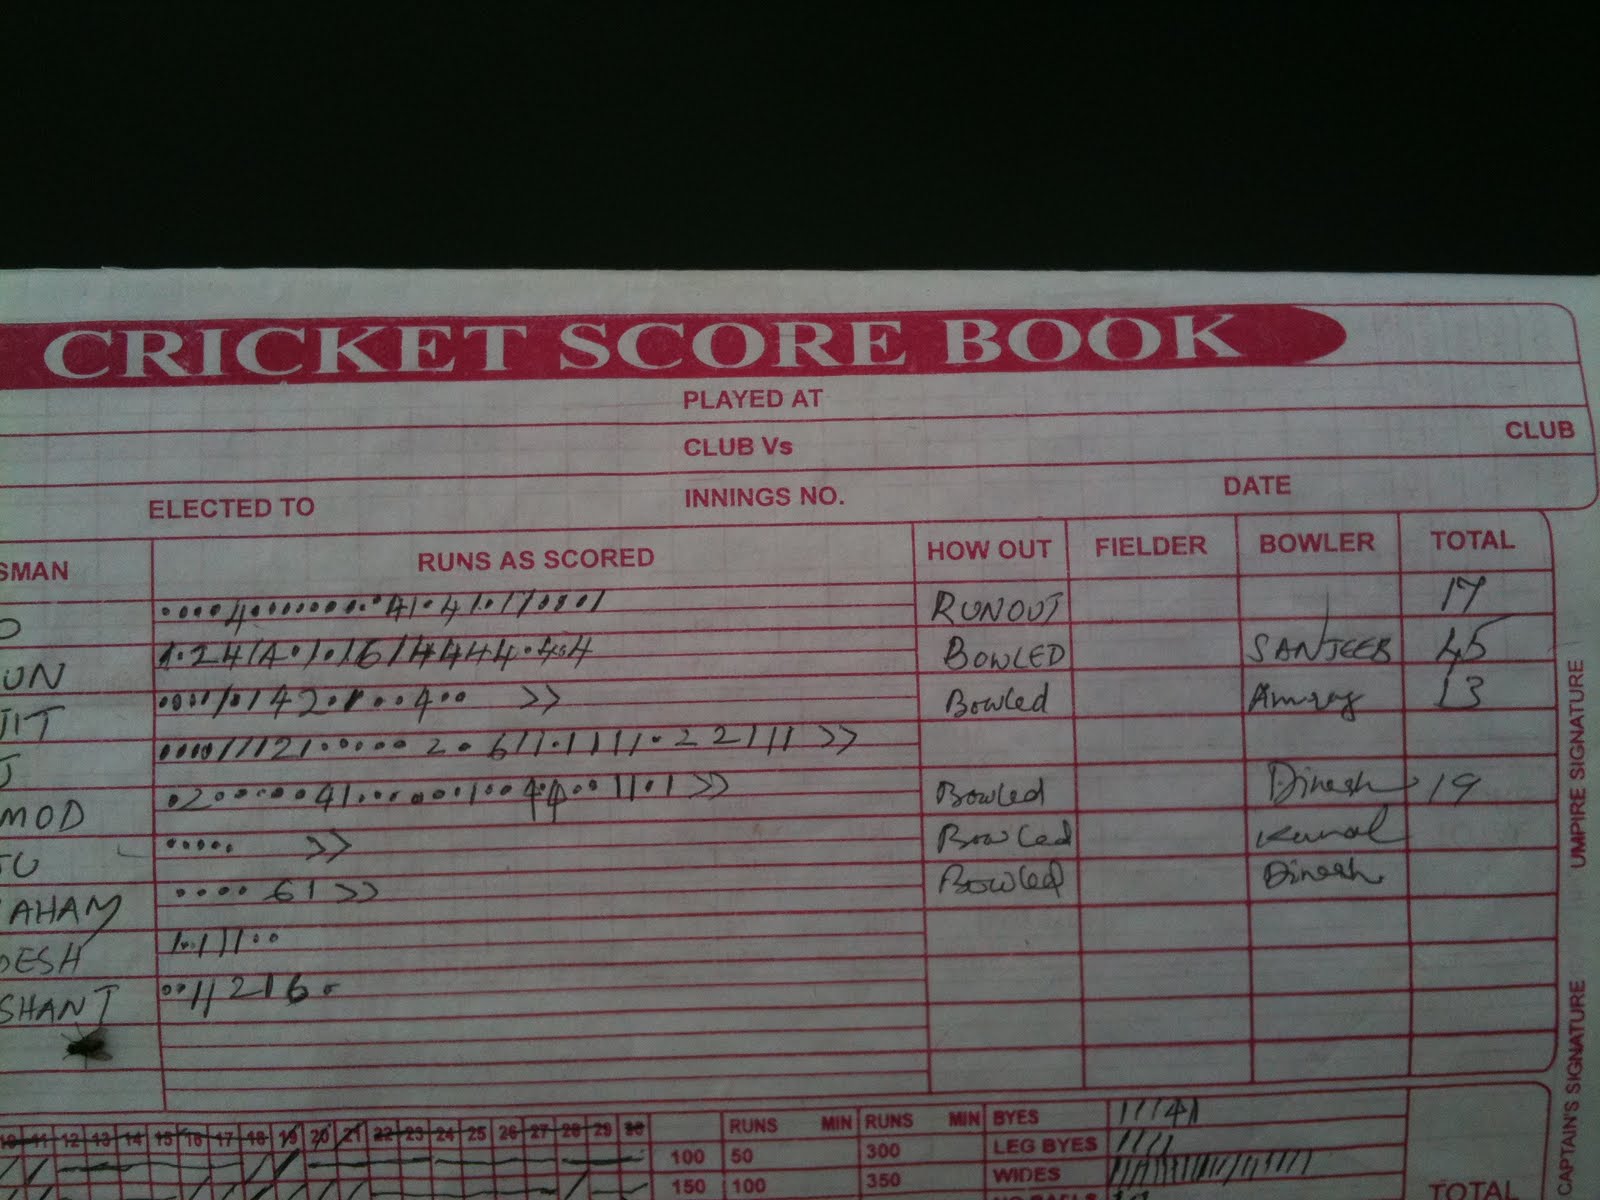 CRICKET SCORE BOOK
PLAYED AT
CLUB Vs CLUB
ELECTED TO INNINGS NO. DATE
SMAN RUNS AS SCORED HOW OUT FIELDER BOWLER TOTAL
O ....4..........41.41.1 RUNOUT 17
UN BOWLED SANJEEB 45
JIT ....1.142.1...4.. >> Bowled 13
J ....11121.....2.611.1111.22111 >>
MOD .2.....41.......1..44..11.1 >> Bowled Dinesh 19
TU ..... >> Bowled Kunal
AHAM ....61 >> Bowled Dinesh
DESH 1.111..
SHANT ..11216.
UMPIRE SIGNATURE
CAPTAIN'S SIGNATURE
10 11 12 13 14 15 16 17 18 19 20 21 22 23 24 25 26 27 28 29 30 RUNS MIN RUNS MIN BYES 11141
100 50 300 LEG BYES 1111
150 100 350 WIDES
TOTAL